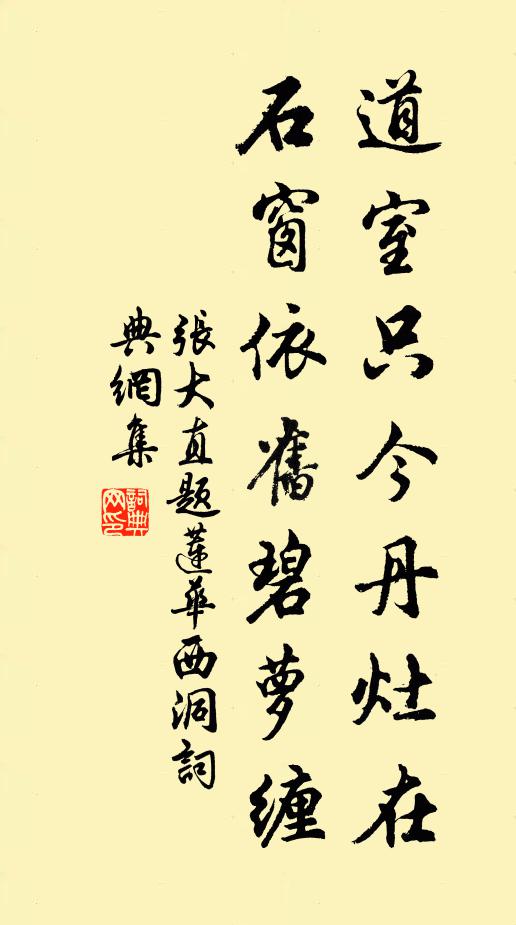 道室只今丹灶在
石窗依舊碧萝缠
張大直题蓮華西洞詞
典網集
詞典网印